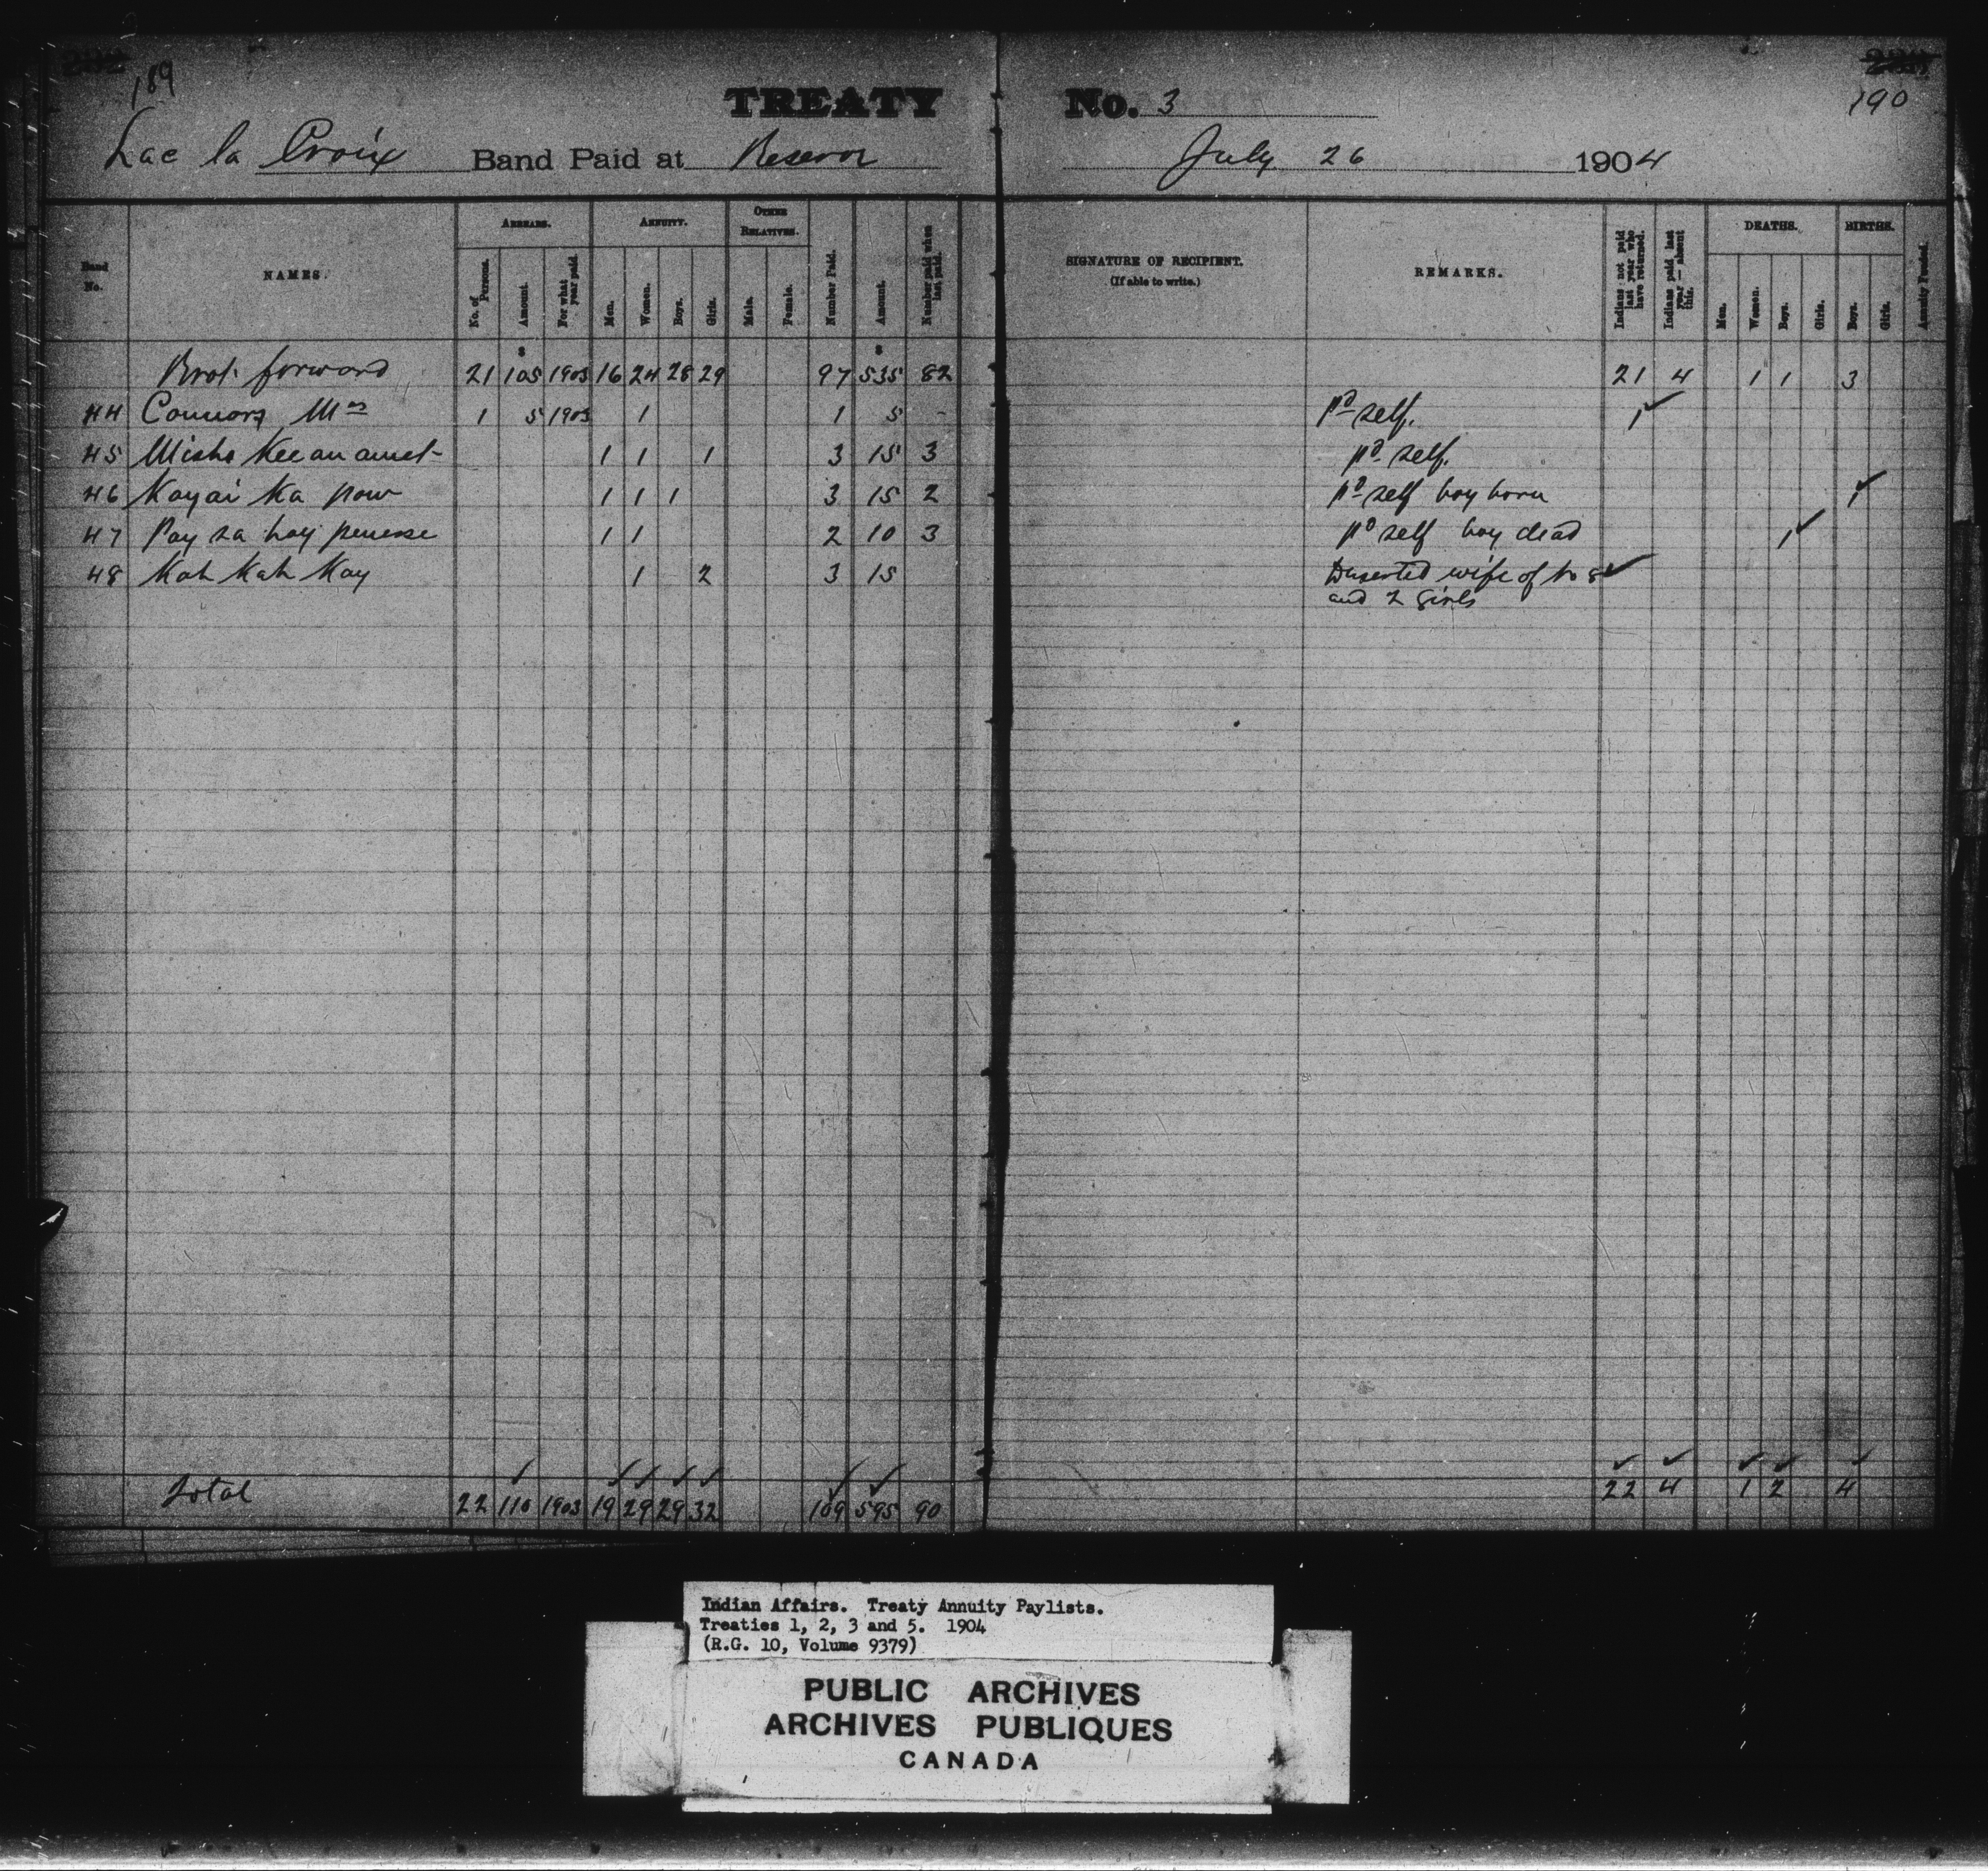 189
190
TREATY No. 3
Lac la Croix Band Paid at Reserve July 26 1904
Band No. NAMES. ARREARS. ANNUITY. OTHER RELATIVES. Number Paid. Amount. Number paid when last paid. SIGNATURE OF RECIPIENT. (If able to write.) REMARKS. Indians not paid last year who have returned. Indians paid last year — absent this. DEATHS. BIRTHS. Annuity Funded.
No. of Persons. Amount. For what year paid. Men. Women. Boys. Girls. Male. Female. Men. Women. Boys. Girls. Boys. Girls.
$ $
Brot forward 21 105 1903 16 24 28 29 97 535 82 21 4 1 1 3
44 Connors Mrs 1 5 1903 1 1 5 - pd self. 1 ✓
45 Misho Kee an amet 1 1 1 3 15 3 pd self.
46 Kayai Ka pow 1 1 1 3 15 2 pd self boy born 1 ✓
47 Pay sa hay 1 1 2 10 3 pd self boy dead 1 ✓
48 Kah Kah Kay 1 2 3 15 Deserted wife of No 8 ✓
and 2 girls
✓ ✓ ✓ ✓ ✓ ✓ ✓ ✓ ✓ ✓ ✓ ✓
Total 22 110 1903 19 29 29 32 109 595 90 22 4 1 2 4
Indian Affairs. Treaty Annuity Paylists.
Treaties 1, 2, 3 and 5. 1904
(R.G. 10, Volume 9379)
PUBLIC ARCHIVES
ARCHIVES PUBLIQUES
CANADA